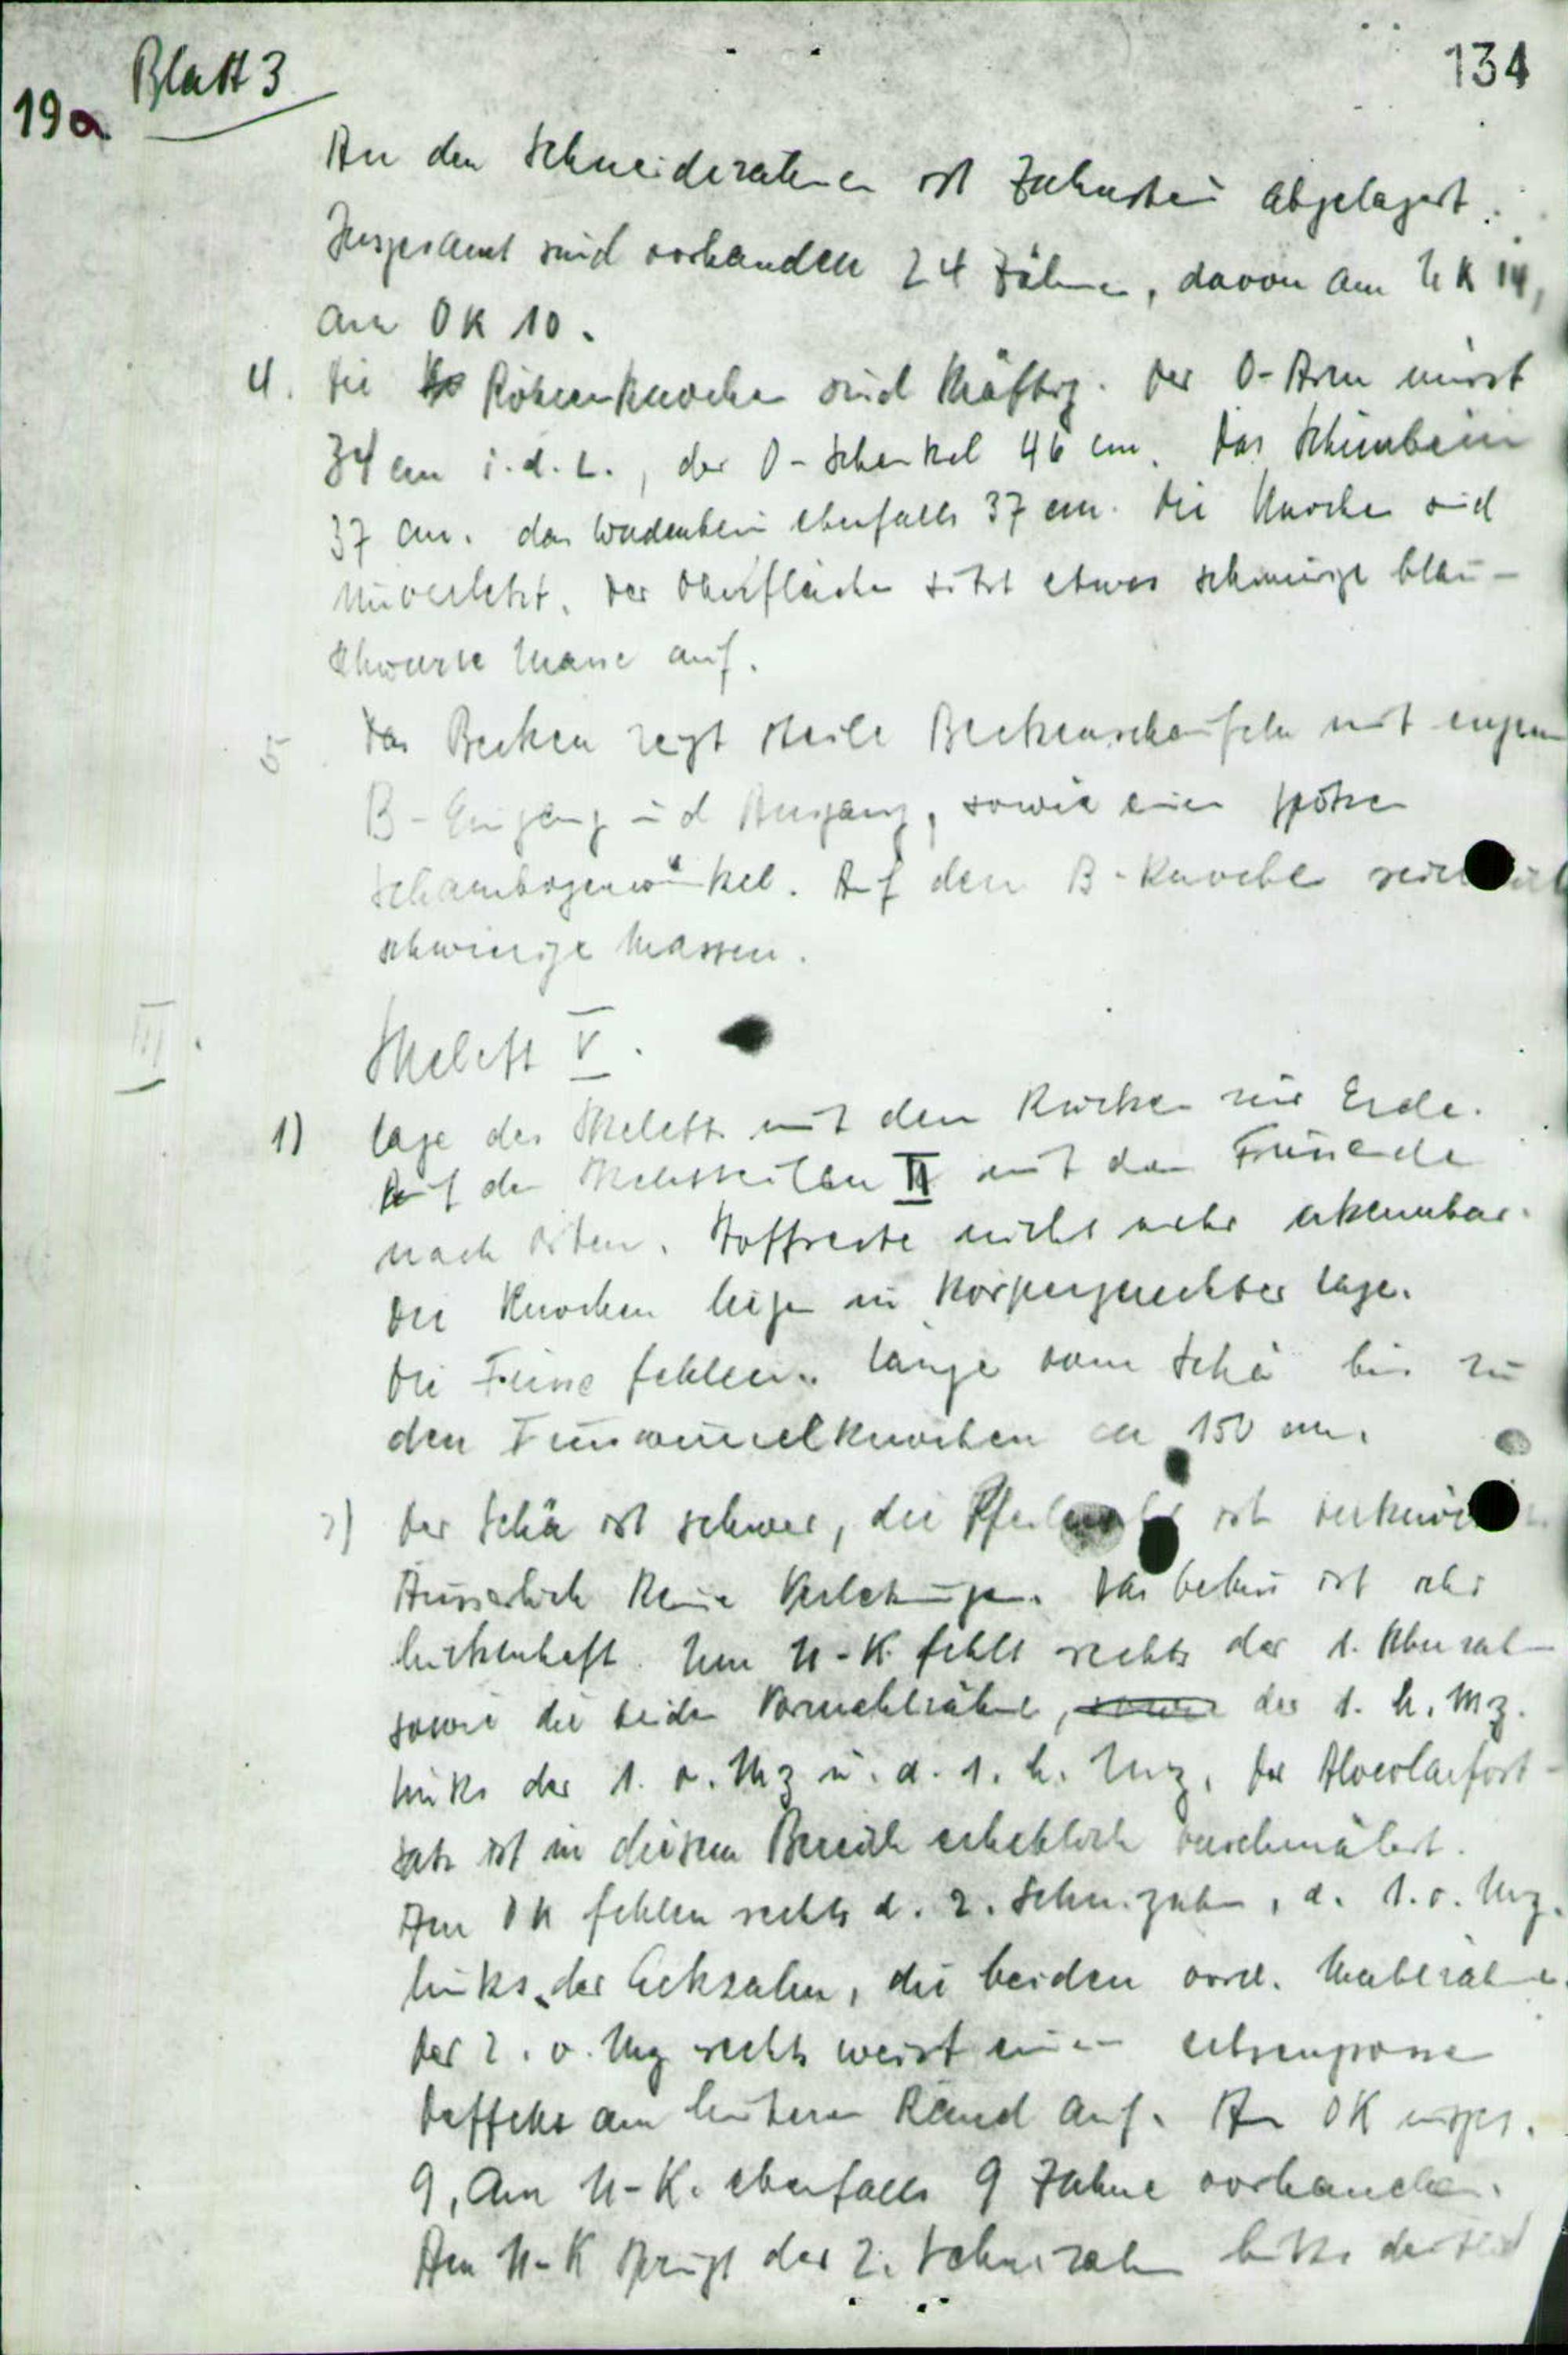 Blatt 3
134
19a
An den Schneidezähnen ist Zahnstein abgelagert.
Insgesamt sind vorhanden 24 Zähne, davon am UK 14,
am OK 10.
4. Die Röhrenknochen sind kräftig. Der O-Arm misst
34 cm i.d.L., der O-Schenkel 46 cm. Das Schienbein
37 cm. das Wadenbein ebenfalls 37 cm. Die Knochen sind
unverletzt. Der Oberfläche sitzt etwas schmierige blau-
schwarze Masse auf.
5 Das Becken zeigt steile Beckenschaufeln mit engem
B-Eingang und Ausgang, sowie einen spitzen
Schambogenwinkel. Auf den B-Knochen
schmierige Massen.
III.
Skelett V.
1) Lage des Skeletts mit dem Rücken zur Erde.
Auf den Skeletteilen II mit dem Fussende
nach Osten. Stoffreste nicht mehr erkennbar.
Die Knochen liegen in körpergerechter Lage.
Die Füsse fehlen. Länge vom Schä bis zu
den Fusswurzelknochen ca 150 cm.
2) Der Schä ist schwer, die Pfeilnaht ist verknöchert.
Äusserlich keine Verletzungen. Das Gebiss ist sehr
lückenhaft. Im U-K. fehlt rechts der 1.
sowie die beiden Vormahlzähne, sowie der 1. h. Mz.
links der 1. v. Mz u. d. 1. h. Mz. Der Alveolarfort-
satz ist in diesem Bereich erheblich verschmälert.
Am OK fehlen rechts d. 2. Schn.zahn, d. 1. v. Mz.
links der Eckzahn, die beiden vord. Mahlzähne.
Der 2. v. Mz rechts weist einen erbsengrossen
Deffekt am hinteren Rand auf. Am OK insges.
9, Am U-K. ebenfalls 9 Zähne vorhanden.
Am U-K springt der 2. Schneizahn links